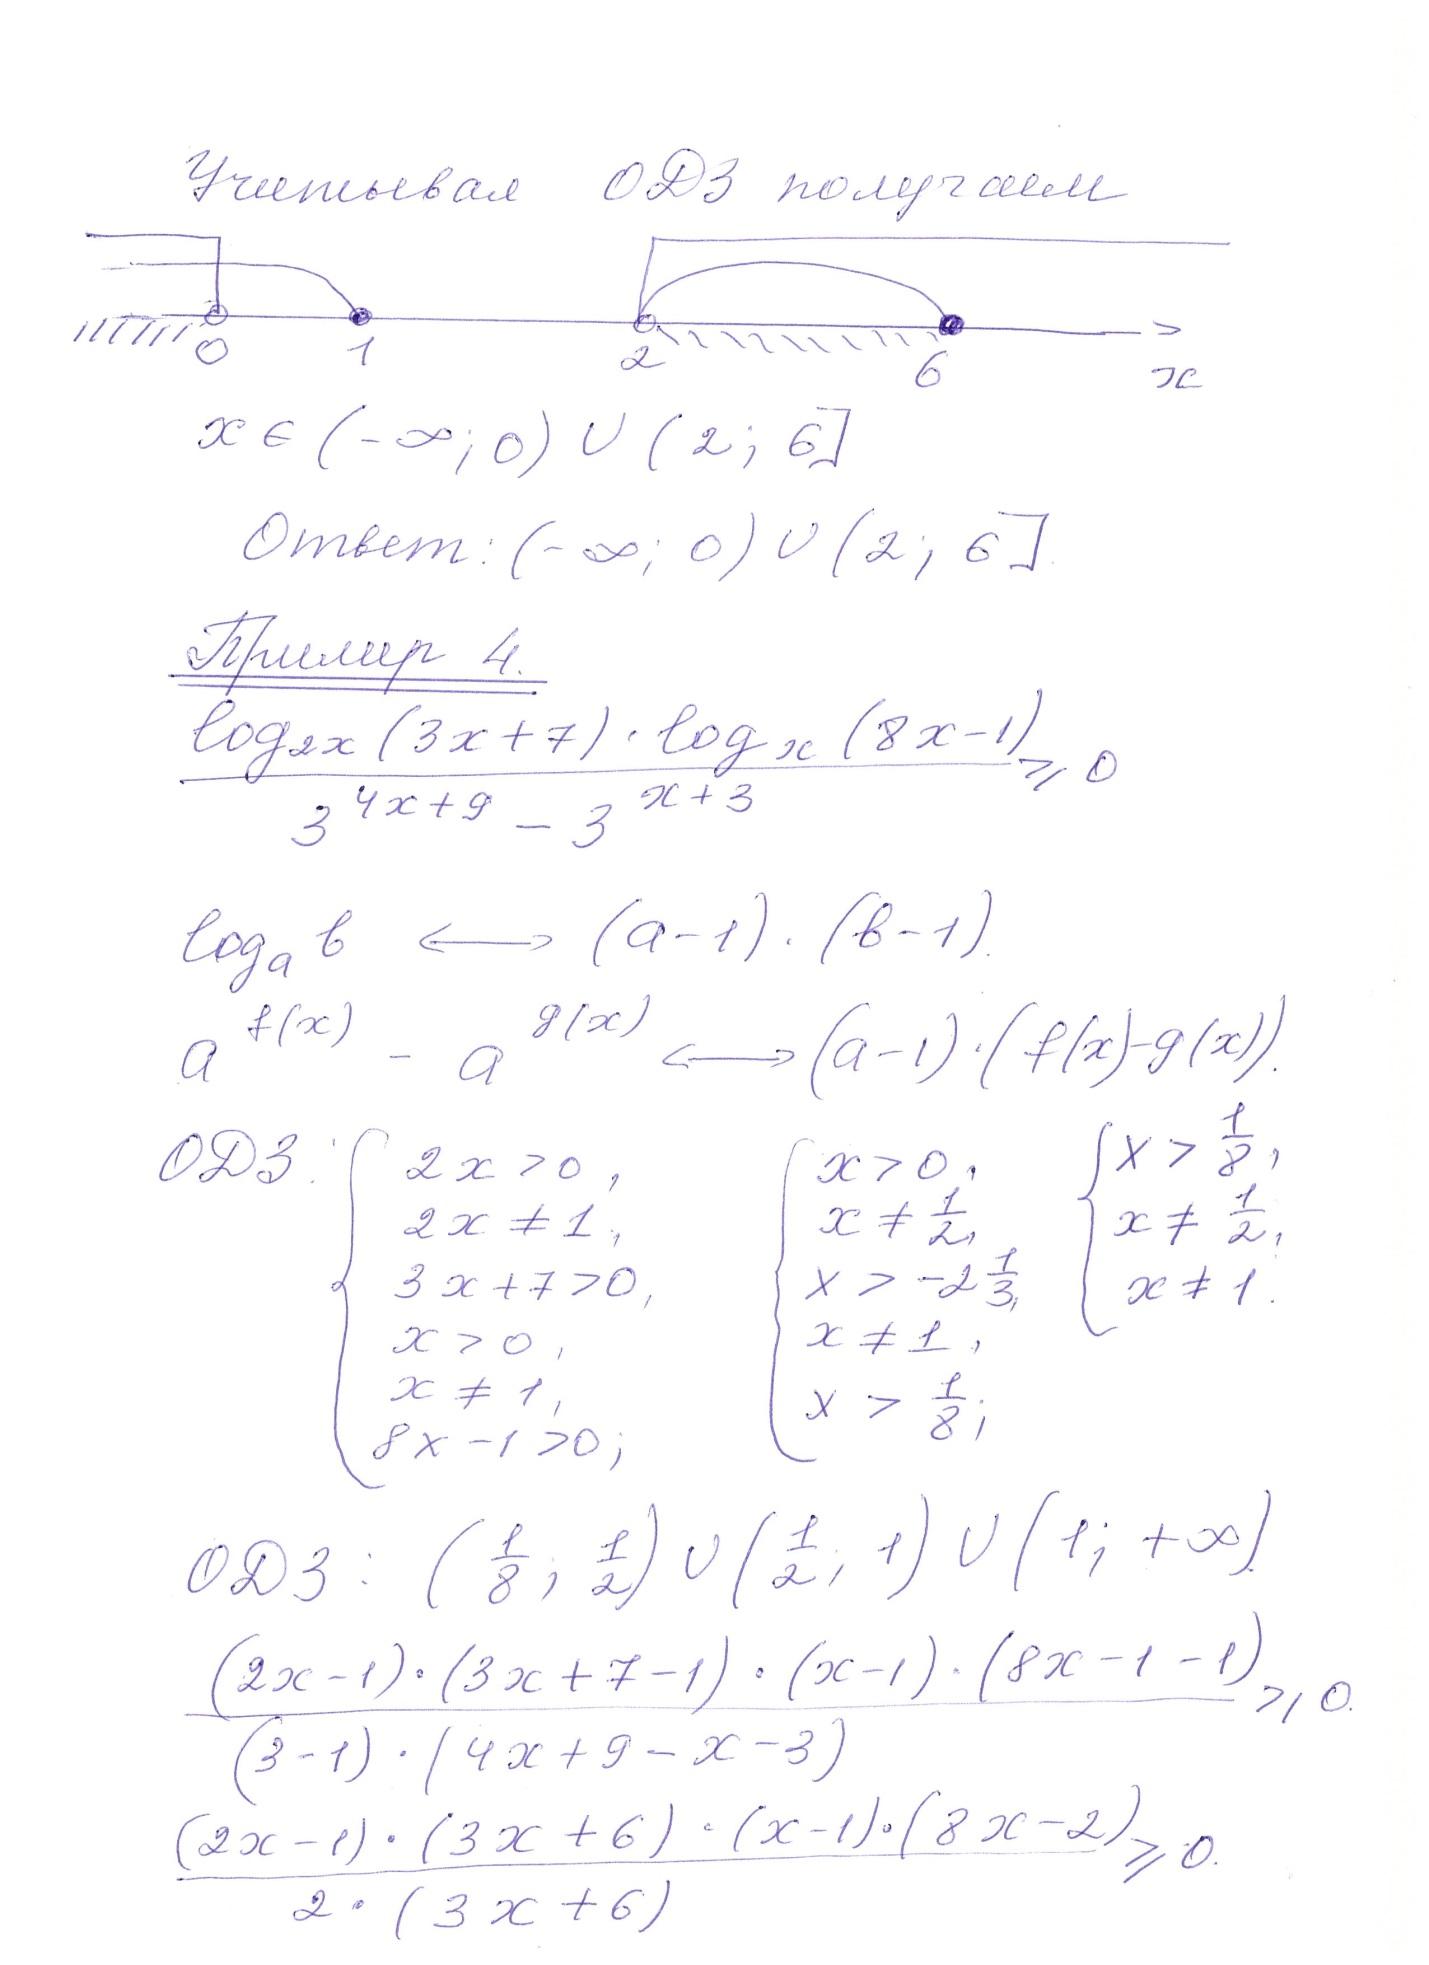 Учитывая ОДЗ получаем
0 1 2 6 x
x ∈ (-∞; 0) ∪ (2; 6]
Ответ: (-∞; 0) ∪ (2; 6].
Пример 4.
log₂ₓ (3x+7) · logₓ (8x-1)
≥ 0
3^(4x+9) - 3^(x+3)
logₐ b ⟷ (a-1) · (b-1).
a^f(x) - a^g(x) ⟷ (a-1) · (f(x)-g(x)).
ОДЗ: { 2x>0, { x>0, { x > 1/8,
2x ≠ 1, x ≠ 1/2, x ≠ 1/2,
3x+7>0, x > -2 1/3, x ≠ 1.
x>0, x ≠ 1,
x ≠ 1, x > 1/8;
8x-1>0;
ОДЗ: (1/8; 1/2) ∪ (1/2; 1) ∪ (1; +∞).
(2x-1) · (3x+7-1) · (x-1) · (8x-1-1)
≥ 0.
(3-1) · (4x+9-x-3)
(2x-1) · (3x+6) · (x-1) · (8x-2)
≥ 0.
2 · (3x+6)